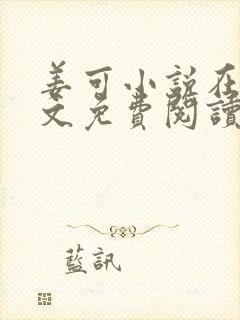 姜可小说在
文免費閱讀
藍訊